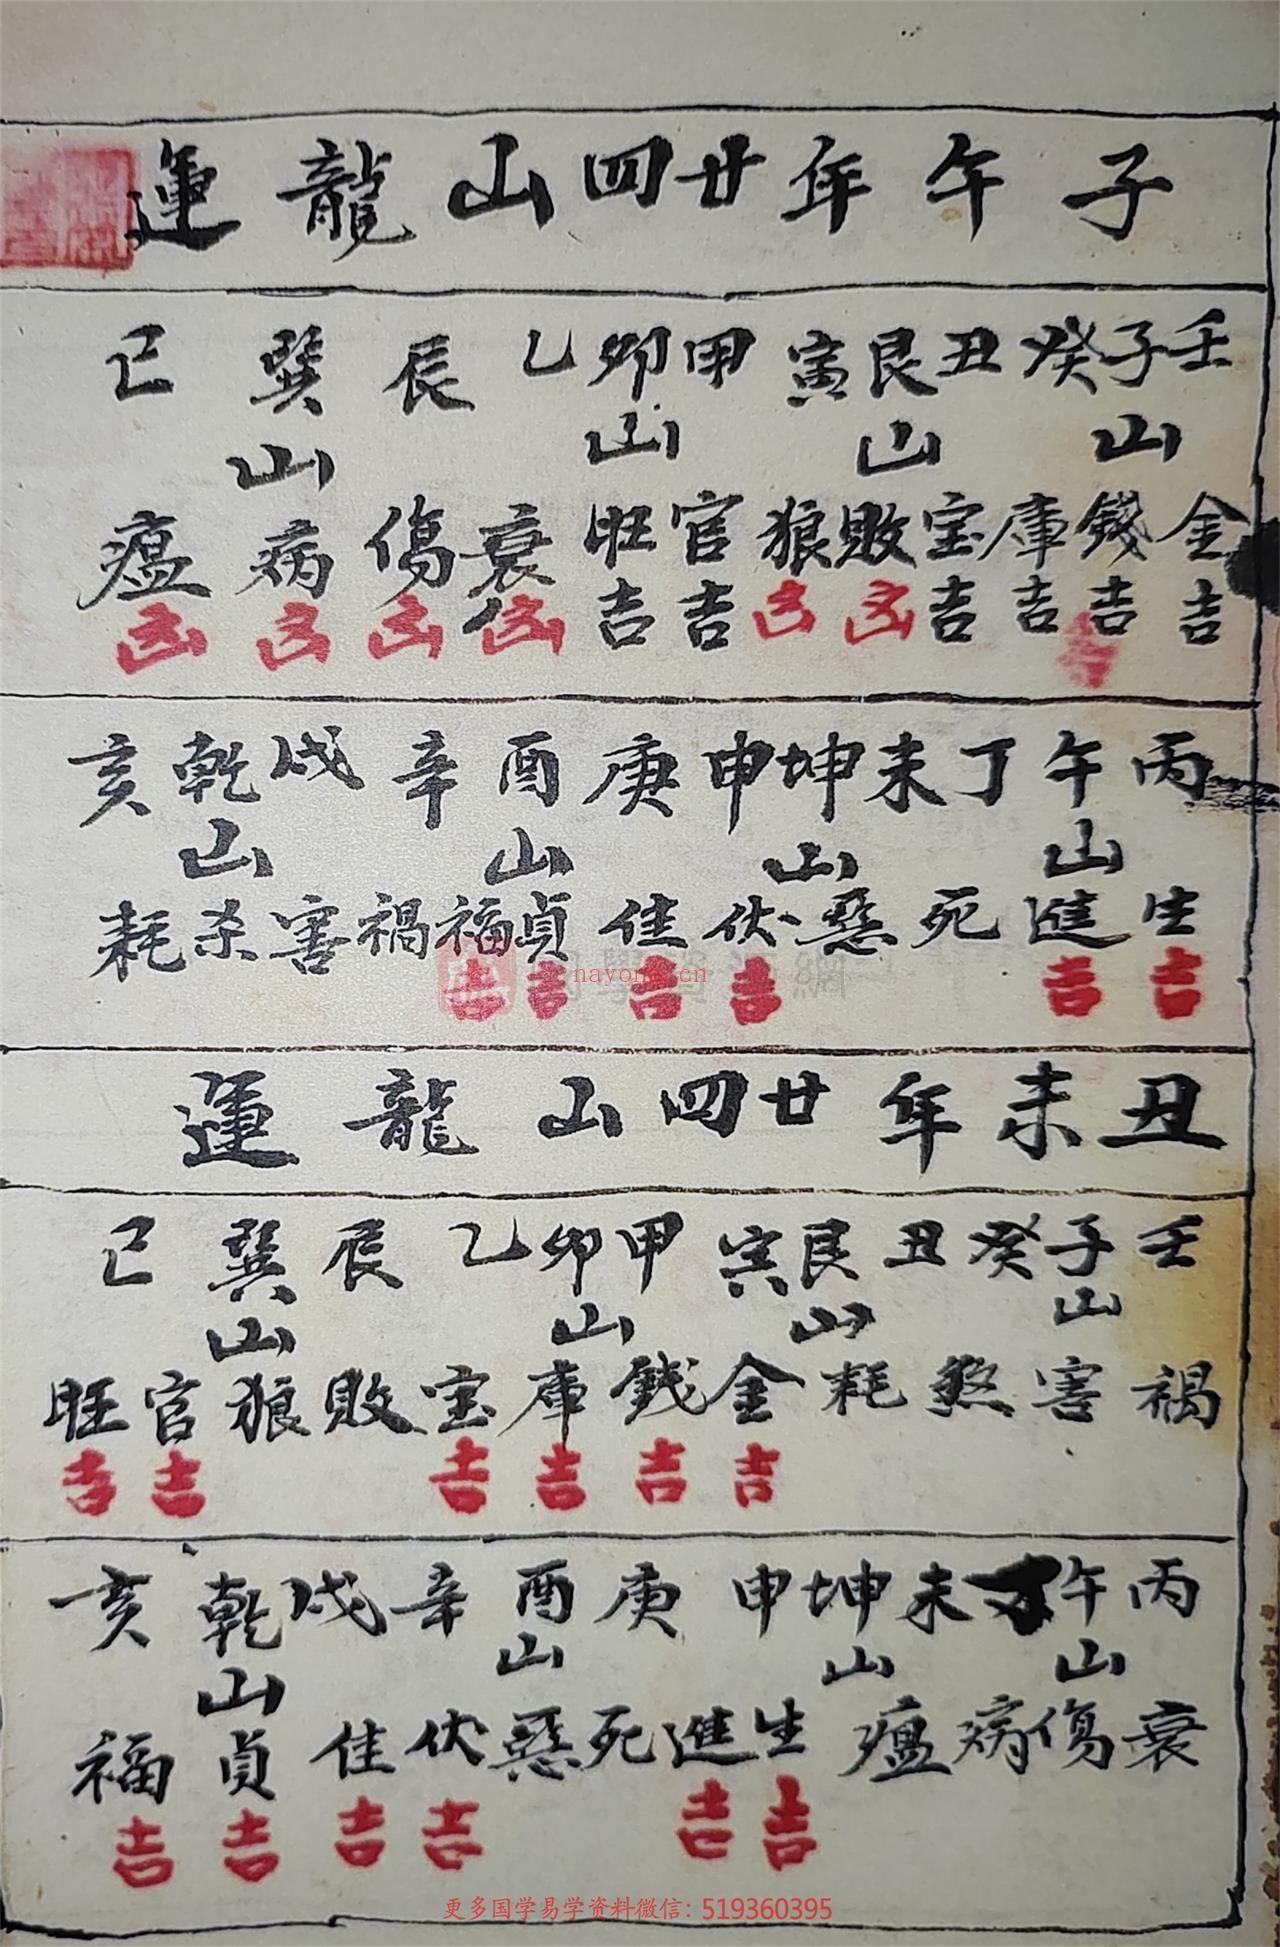 子午年廿四山龍運
壬子癸丑艮寅甲卯乙辰巽巳
山山山山
金錢庫宝敗狼官旺衰傷病瘟
吉吉吉吉凶凶吉吉凶凶凶凶
丙午丁未坤申庚酉辛戌乾亥
山山山山
生進死惡伏佳貞福禍害杀耗
吉吉吉吉吉吉
nayona.cn
丑未年廿四山龍運
壬子癸丑艮寅甲卯乙辰巽巳
山山山山
禍害煞耗金錢庫宝敗狼官旺
吉吉吉吉吉吉
丙午丁未坤申庚酉辛戌乾亥
山山山山
衰傷病瘟生進死惡伏佳貞福
吉吉吉吉吉吉
更多国学易学资料微信：519360395